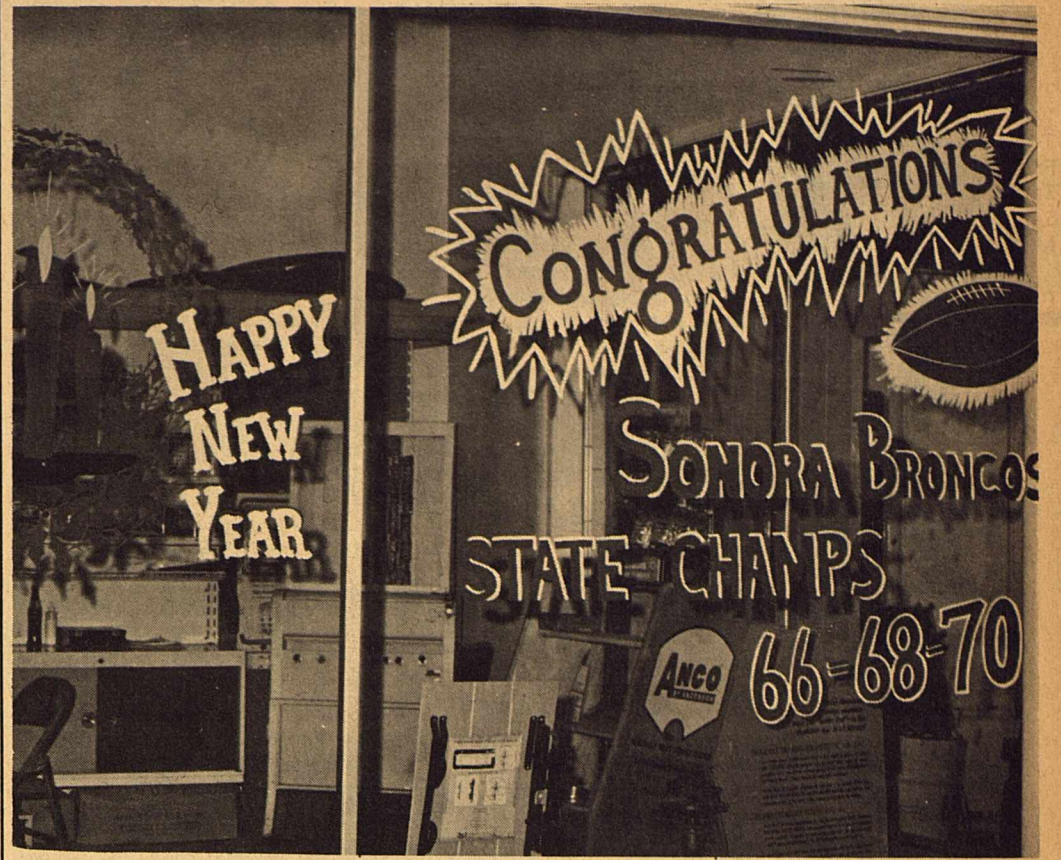 HAPPY
NEW
YEAR
CONGRATULATIONS
SONORA BRONCOS
STATE CHAMPS
66-68-70
ANCO